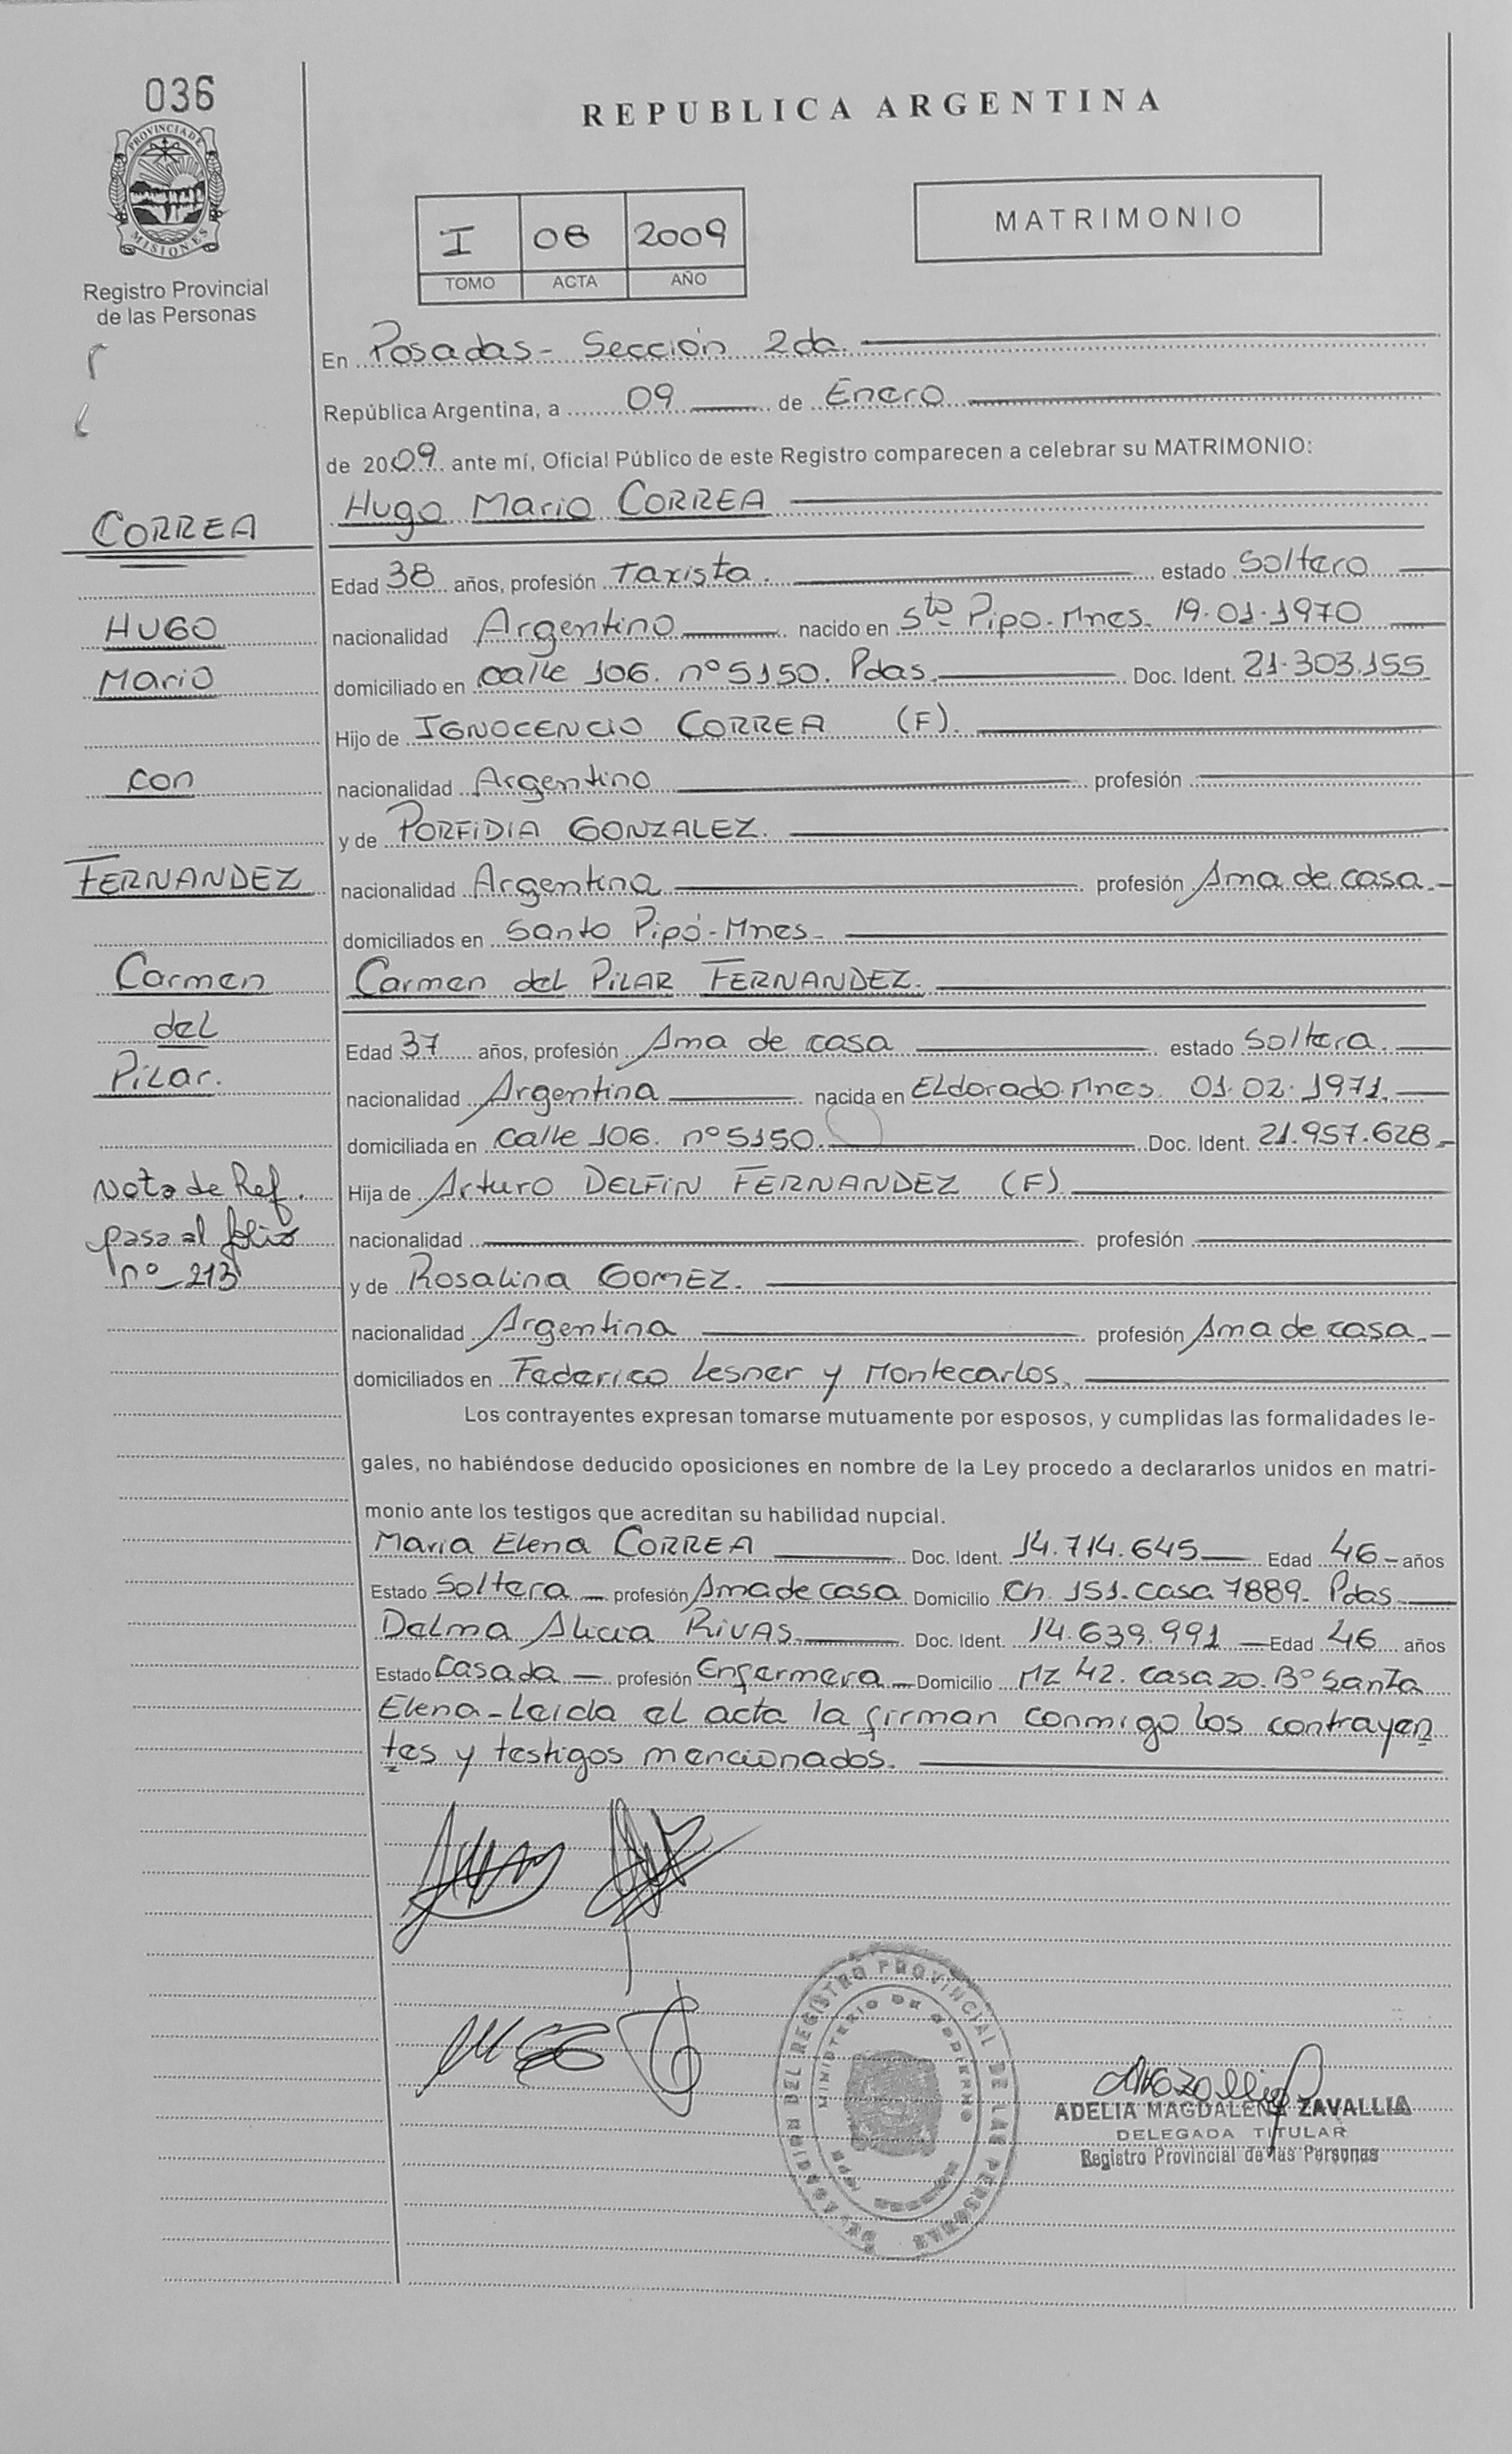 036
PROVINCIA DE
MISIONES
Registro Provincial
de las Personas
REPUBLICA ARGENTINA
I 06 2009
TOMO ACTA AÑO
MATRIMONIO
En Posadas - Sección 2da.
República Argentina, a 09 de Enero
de 2009 ante mí, Oficial Público de este Registro comparecen a celebrar su MATRIMONIO:
Hugo Mario CORREA
CORREA
Edad 38 años, profesión Taxista. estado Soltero
HUGO
nacionalidad Argentino nacido en Sto Pipo. Mnes. 19.01.1970
Mario
domiciliado en calle 106. nº 5150. Pdas. Doc. Ident. 21.303.155
Hijo de IGNOCENCIO CORREA (F).
con
nacionalidad Argentino profesión
y de PORFIDIA GONZALEZ.
FERNANDEZ
nacionalidad Argentina profesión Ama de casa.
domiciliados en Santo Pipó - Mnes.
Carmen
Carmen del PILAR FERNANDEZ.
del
Edad 37 años, profesión Ama de casa estado Soltera.
Pilar.
nacionalidad Argentina nacida en Eldorado. Mnes. 01.02.1971.
domiciliada en calle 106. nº 5150. Doc. Ident. 21.957.628.
Nota de Ref.
Hija de Arturo DELFIN FERNANDEZ (F).
pasa al folio
nacionalidad profesión
nº 213
y de Rosalina GOMEZ.
nacionalidad Argentina profesión Ama de casa.
domiciliados en Federico Lesner y Montecarlos.
Los contrayentes expresan tomarse mutuamente por esposos, y cumplidas las formalidades le-
gales, no habiéndose deducido oposiciones en nombre de la Ley procedo a declararlos unidos en matri-
monio ante los testigos que acreditan su habilidad nupcial.
Maria Elena CORREA Doc. Ident. 14.714.645 Edad 46 años
Estado Soltera profesión Ama de casa Domicilio Ch. 151. casa 7889. Pdas.
Delma Alicia RIVAS. Doc. Ident. 14.639.991 Edad 46 años
Estado Casada profesión Enfermera Domicilio Mz 42. casa 20. Bº Santa
Elena - Leida el acta la firman conmigo los contrayen
tes y testigos mencionados.
DEL REGISTRO PROVINCIAL DE LAS PERSONAS
MINISTERIO DE GOBIERNO
ADELIA MAGDALENA ZAVALLIA
DELEGADA TITULAR
Registro Provincial de las Personas